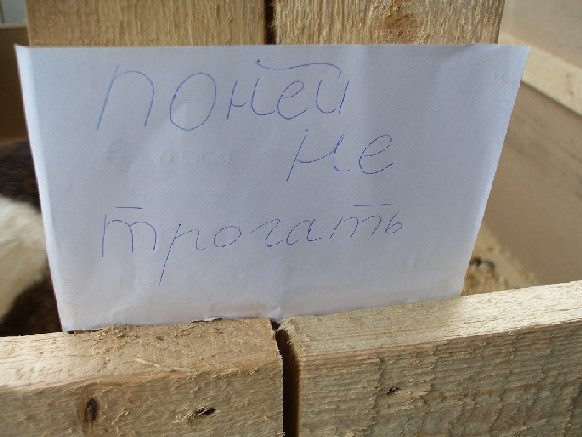 поней
не
трогать